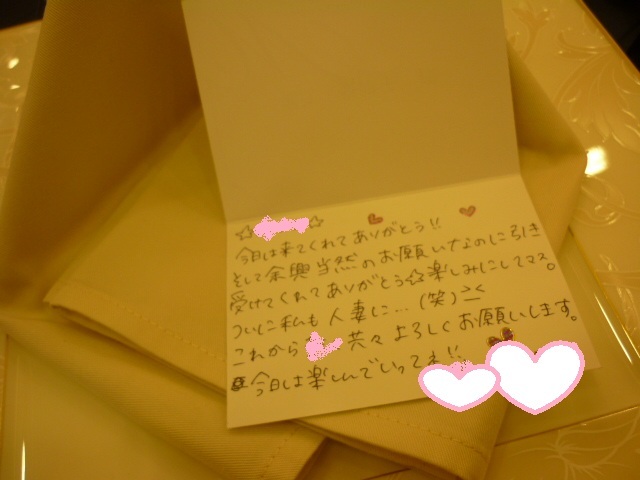 今日は来てくれてありがとう!!
そして余興当然のお願いなのに引き
受けてくれてありがとう☆楽しみにしてマス。
ついに私も人妻に…(笑)
これから 共々よろしくお願いします。
今日は楽しんでいってネ!!